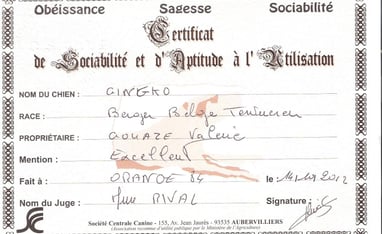 Obéissance Sagesse Sociabilité
Certificat
de Sociabilité et d'Aptitude à l'Utilisation
NOM DU CHIEN : GINGKO
RACE : Berger Belge Tervueren
PROPRIÉTAIRE : GOUAZE Valérie
Mention : Excellent
Fait à : ORANGE 84 le : 2012
Nom du Juge : RIVAL Signature :
Société Centrale Canine - 155, Av. Jean Jaurès - 93535 AUBERVILLIERS
(Association reconnue d'utilité publique par le Ministère de l'Agriculture)